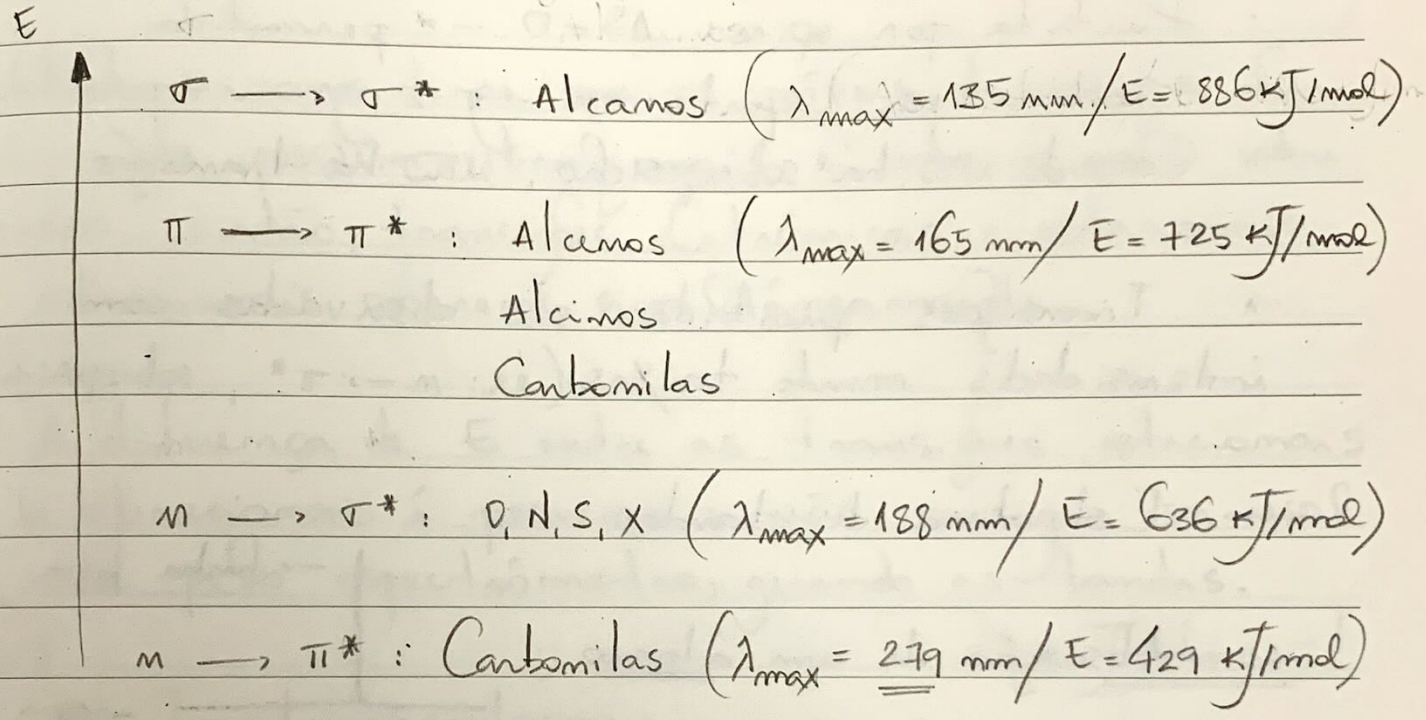 E σ
σ → σ* : Alcanos (λmax = 135 nm / E = 886 kJ/mol)
π → π* : Alcenos (λmax = 165 nm / E = 725 kJ/mol)
Alcinos
Carbonilas
n → σ* : O, N, S, X (λmax = 188 nm / E = 636 kJ/mol)
n → π* : Carbonilas (λmax = 279 nm / E = 429 kJ/mol)